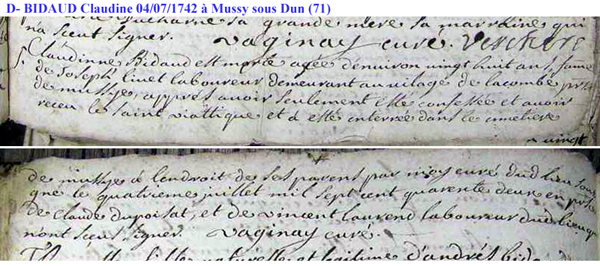 D- BIDAUD Claudine 04/07/1742 à Mussy sous Dun (71)
sa grande mere sa marraine qui
na sceut signer. vaginay curé. Verchere
Claudinne Bidaud est morte agée denuiron vingt huit ans, fame
de Joseph Liuet laboureur demeurant au vilage de lacombe
de mussye, appres auoir seulement esté confessée et auoir
receu le saint viattique et a esté interrée dans ce cimeliere
de mussye a lendroit de ses parens par moy curé dud lieu sous
que le quatrieme juillet mil sept cent quarente deux en
de Claude dupoisat, et de vincent laurend laboureur dud lieu qui
nont sceut signer. vaginay curé.
fille naturelle et legitime d'andrés